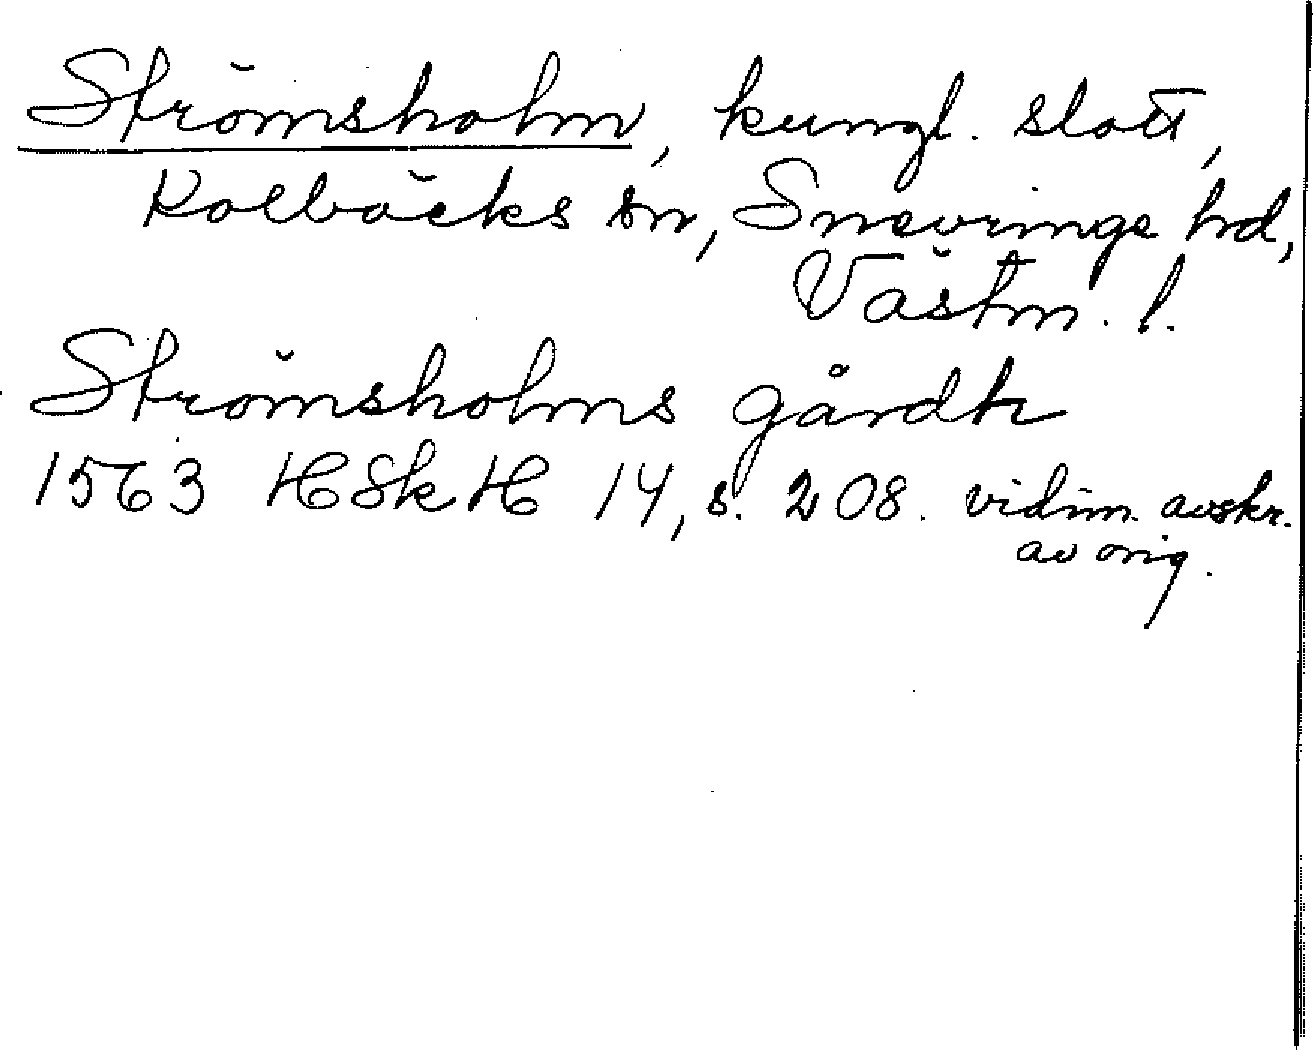 Strömsholm, kungl. slott,
Kolbäcks sn, Snevringe hd,
Västm. l.
Strömsholms gårdh
1563 HSkH 14, s. 208. vidim. avskr.
av orig.